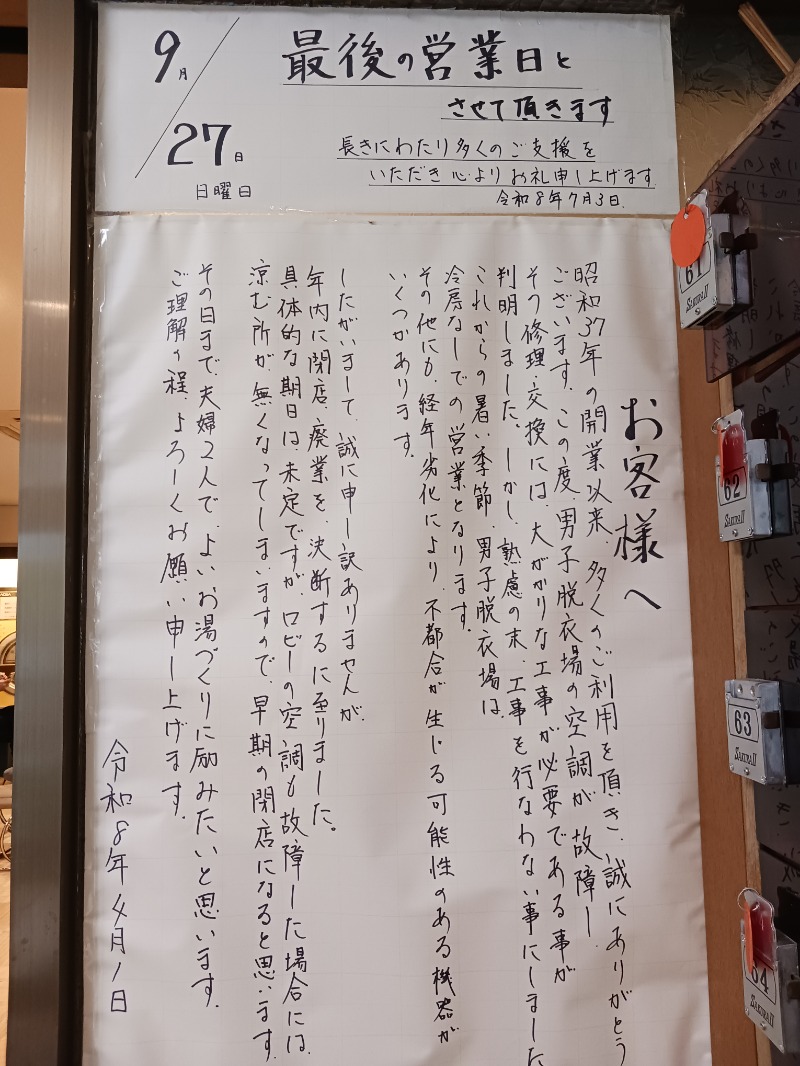 9月
27日
日曜日
最後の営業日と
させて頂きます
長きにわたり多くのご支援を
いただき心よりお礼申し上げます
令和8年7月3日.
お客様へ
昭和37年の開業以来、多くのご利用を頂き、誠にありがとう
ございます。この度、男子脱衣場の空調が故障し
その修理・交換には、大がかりな工事が必要である事が
判明しました。しかし、熟慮の末、工事を行なわない事にしました
これからの暑い季節、男子脱衣場は、
冷房なしでの営業となります。
その他にも、経年劣化により、不都合が生じる可能性のある機器が
いくつかあります。
したがいまして、誠に申し訳ありませんが、
年内に閉店、廃業を、決断するに至りました。
具体的な期日は、未定ですが、ロビーの空調も故障した場合には、
涼む所が、無くなってしまいますので、早期の閉店になると思います。
その日まで、夫婦2人で、よいお湯づくりに励みたいと思います。
ご理解の程、よろしくお願い申し上げます。
令和8年4月1日
61
SAKURA II
62
SAKURA II
63
SAKURA II
64
SAKURA II